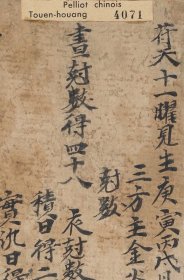 Pelliot chinois
Touen-houang 4071
符天十一曜見生庚寅丙戌月
三方主金火
晝尅數得四十八
尅數
辰尅數
積日得二
實汎日得